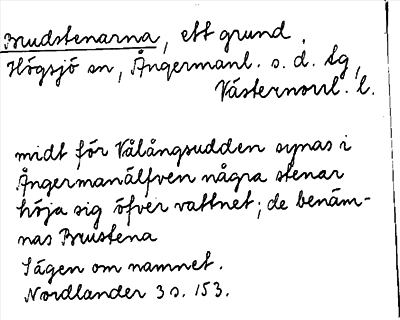 Brudstenarna, ett grund.
Högsjö sn, Ångermanl. s. d. tg,
Västernorrl. l.
midt för Vålångsudden synas i
Ångermanälfven några stenar
höja sig öfver vattnet; de benäm-
nas Brustena
Sägen om namnet.
Nordlander 3 s. 153.